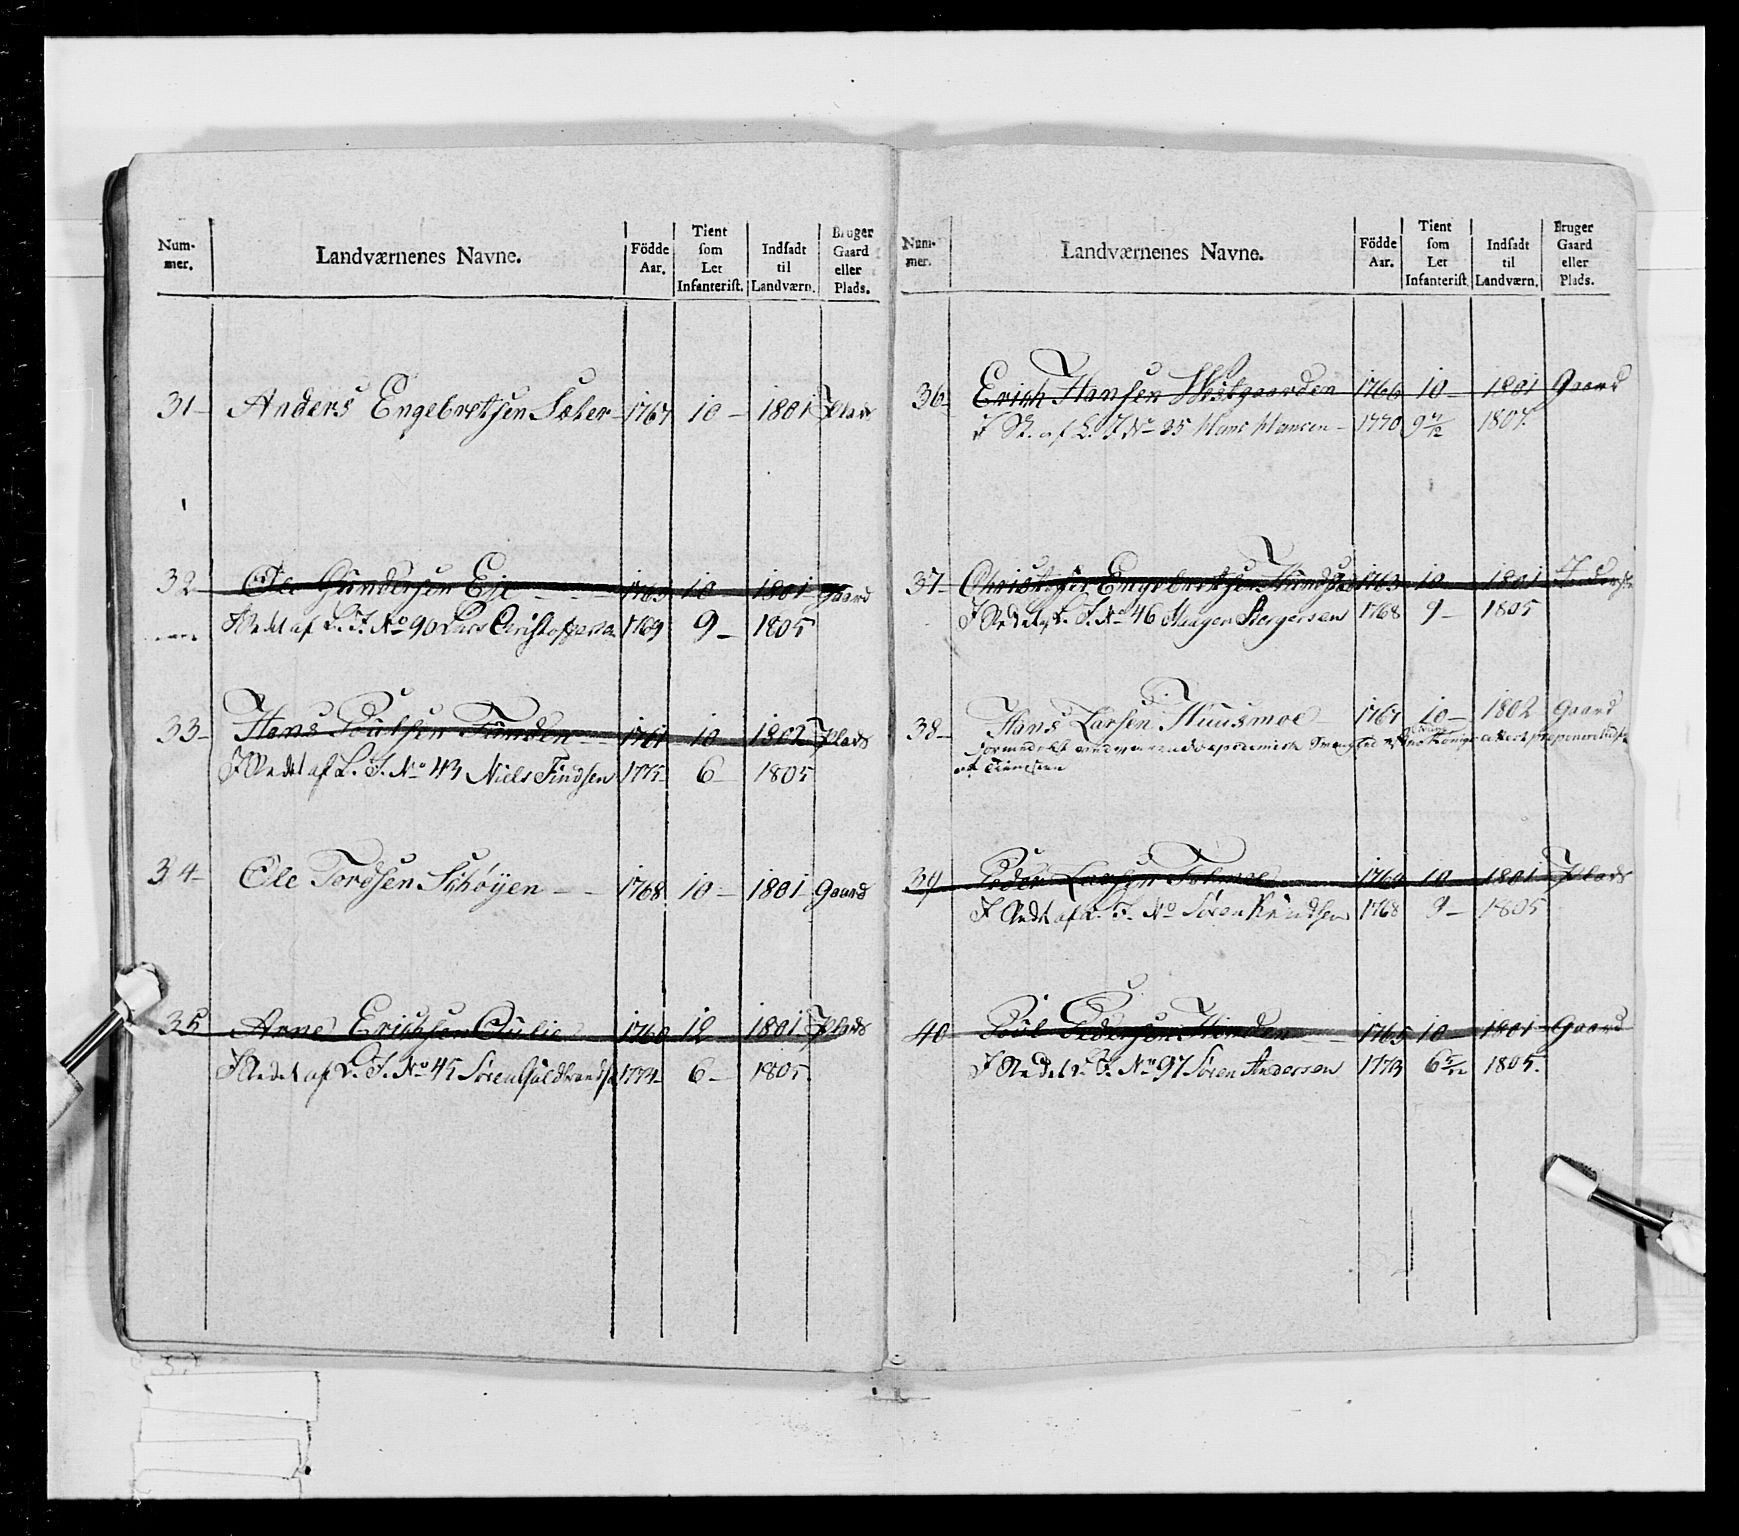 Num-
mer.
Landværnenes Navne.
Födde
Aar.
Tient
som
Let
Infanterist.
Indsadt
til
Landværn.
Bruger
Gaard
eller
Plads.
31- Anders Engebretsen Sæter - 1767 10 - 1801 Plads
32 Ole Gundersen Eie - 1765 10 1801 Gaard
I Stedet af L. I. No 90 Lars Christophersen 1769 9 - 1805
33- Hans Poulsen Tunden 10 - 1802 Plads
I Stedet af L. I. No 43 Niels Findsen 1775 6 - 1805
34- Ole Tordsen Schøyen - - 1768 10 - 1801 Gaard
35 Arne Erichsen 1760 12 1801 Plads
I Stedet af L. I. No 45 Søren Guldbrandsen 1774 6 - 1805.
Num-
mer.
Landværnenes Navne.
Födde
Aar.
Tient
som
Let
Infanterist.
Indsadt
til
Landværn.
Bruger
Gaard
eller
Plads.
36- Erich Hansen Westgaarden 1766 10 - 1801 Gaard
I St. af L. I No 35 Hans Hansen - 1770 9 1807.
37- Christopher Engebretsen 1763 10 - 1801
I Stedet L. I. No 46 Haagen Børgersen 1768 9 - 1805
38- Hans Larsen Huusmoe - 1767 10 - 1802 Gaard
39 Peder Larsen 10 - 1801 Plads
I Stedet af L. I. No Søren Knudsen 1768 9 - 1805
40 Poul Pedersen 1765 10 - 1801 Gaard
I Stedet L. I. No 97 Søren Andersen 1773 6 5/12 1805.